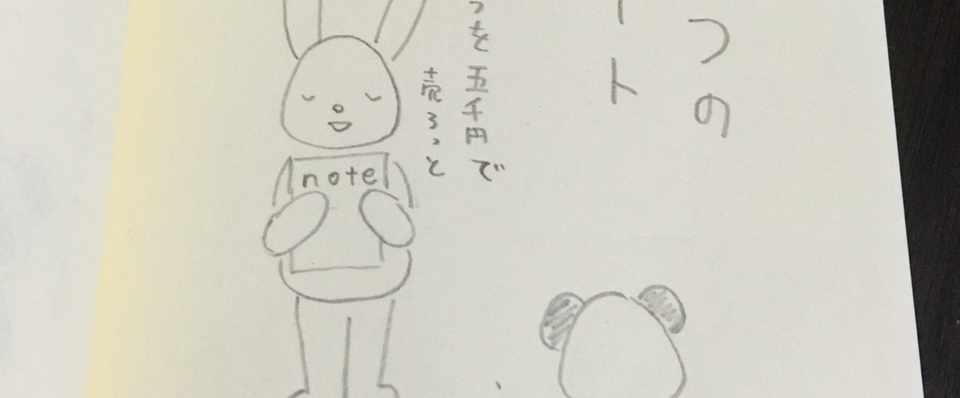 つの
ート
つを五千円で
売ろっと
note